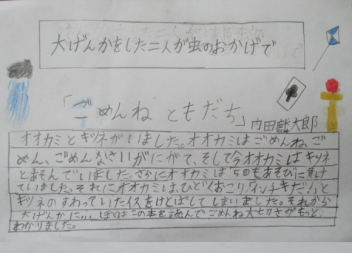 大げんかをした二人が虫のおかげで
「ごめんね ともだち」内田麟太郎
オオカミとキツネがいました。オオカミはごめんね、ご
めん、ごめんなさいがにがて、そして今オオカミはキツネ
とあそんでいました。さらにオオカミは5回もあそびに負け
ていました。それにオオカミは、ひどくおこり「インチキだ!」と
キツネのすわっていたイスをけとばしてしまいました。それから
大げんかに…ぼくはこの本を読んでごめんね大切さがもっと
わかりました。